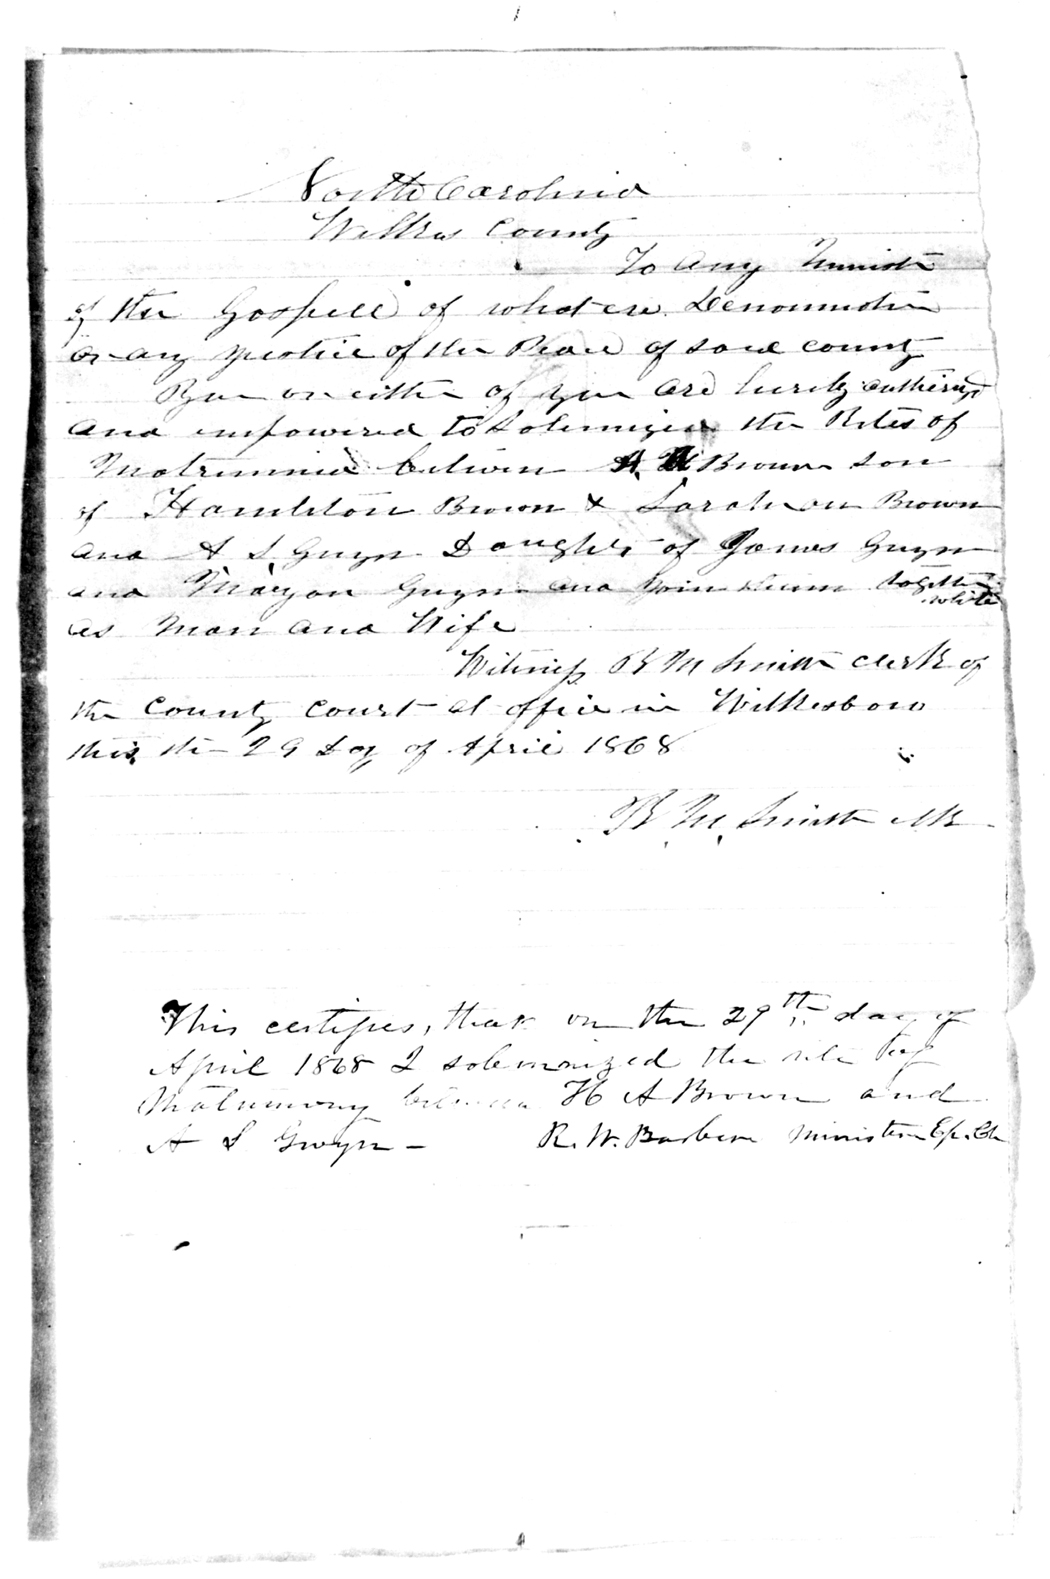 North Carolina
Wilkes County
To any Minister
of the Gospell of what ere Denomination
or any Justice of the Peace of said county
You or either of you are hereby autherized
and empowered to Solemnize the Rites of
Matrimonie between Brown son
of Hamilton Brown & Sarah an Brown
and A S Guyn Daughter of James Guyn
and Maryan Guyn and Join them together
white
as Man and Wife
Witness R M Smith clerk of
the County Court at office in Wilkesboro
this the 29 Day of April 1868
R. M. Smith clk
This certifies, that on the 29th day of
April 1868 I solemnized the rite of
Matrimony between H A Brown and
A S Gwyn - R. W. Barber Minister Ep. Ch